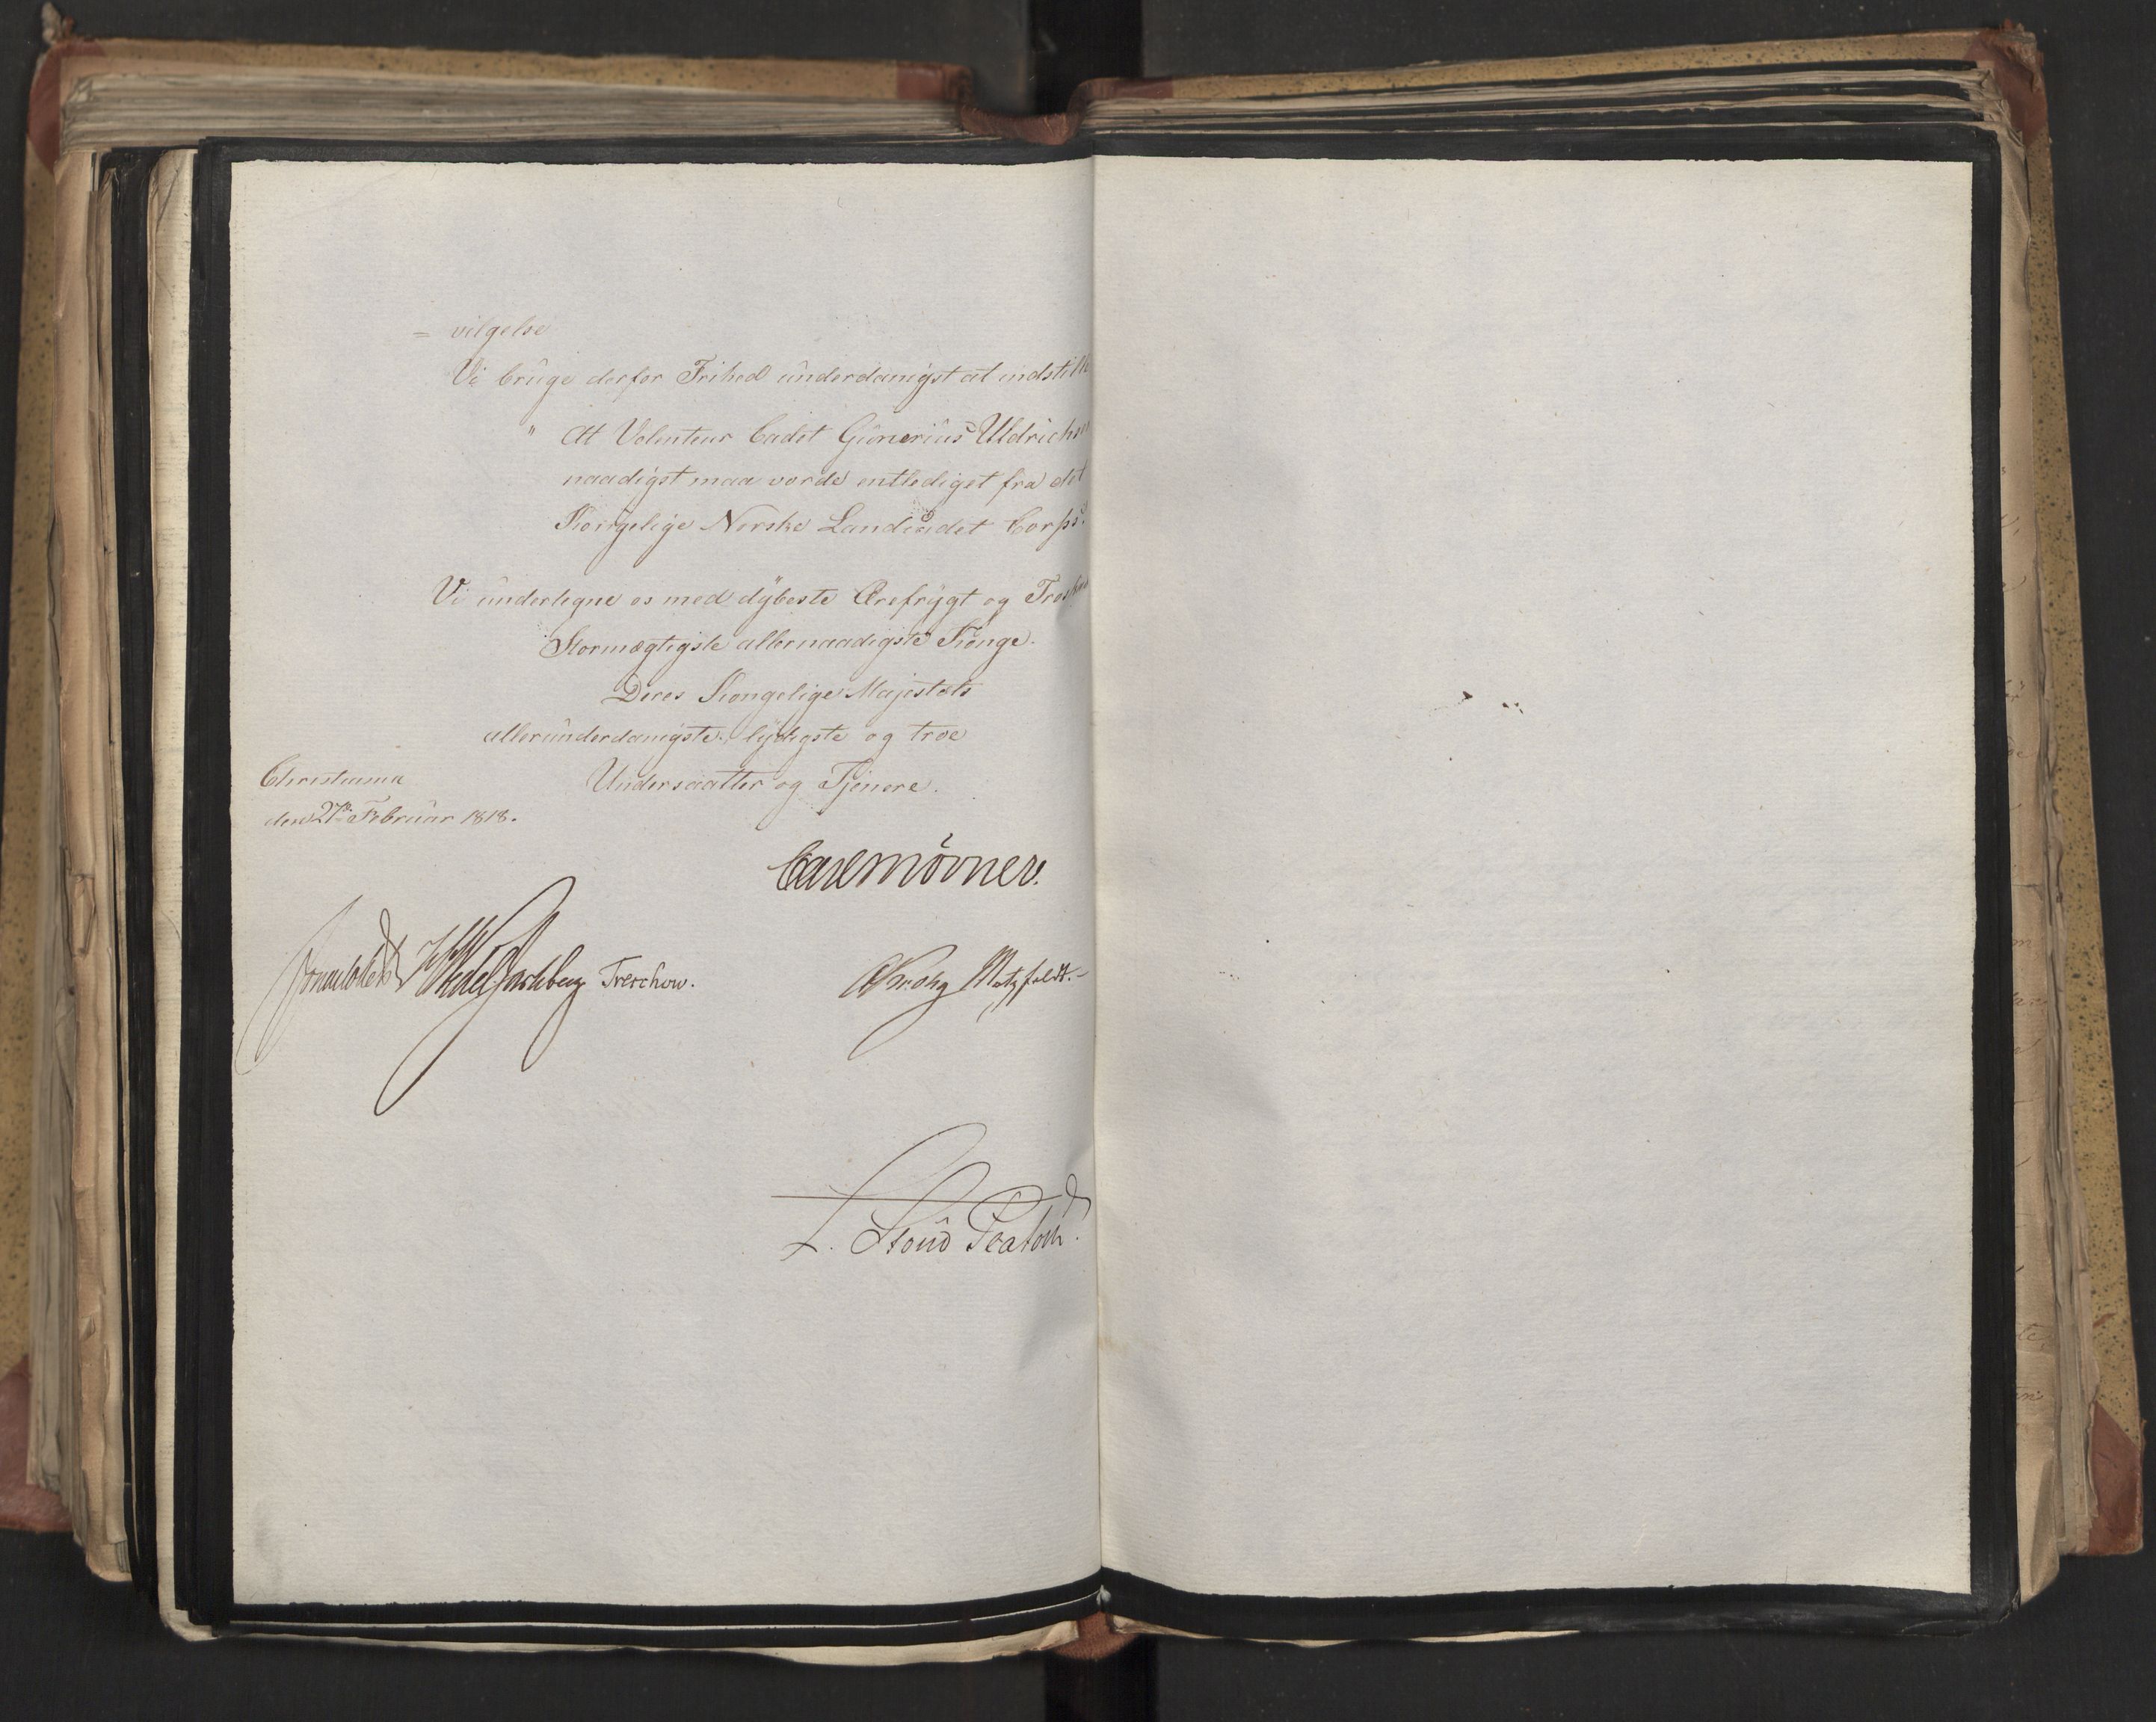 = vilgelse
Vi bruge derfor Frihed underdanigst at indstille
" At Volenteur Cadet Gunerius Uldrichsen
naadigst maa vorde entlediget fra det
Kongelige Norske Landcadet Corps.
Vi undertegne os med dybeste Ærefrygt og Troskab
Stormægtigste allernaadigste Konge.
Deres Kongelige Majestæts
allerunderdanigste, lydigste og troe
Undersaatter og Tjenere.
Christiania
den 27de Februar 1818.
Carl Mörner.
Sommerhielm HWedel Jarlsberg Treschow. CKrohg Motzfeldt.
L. Stoud Platou.